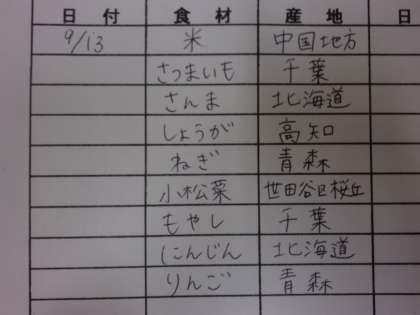 日付 食材 産地 日
9/13 米 中国地方
さつまいも 千葉
さんま 北海道
しょうが 高知
ねぎ 青森
小松菜 世田谷区桜丘
もやし 千葉
にんじん 北海道
りんご 青森